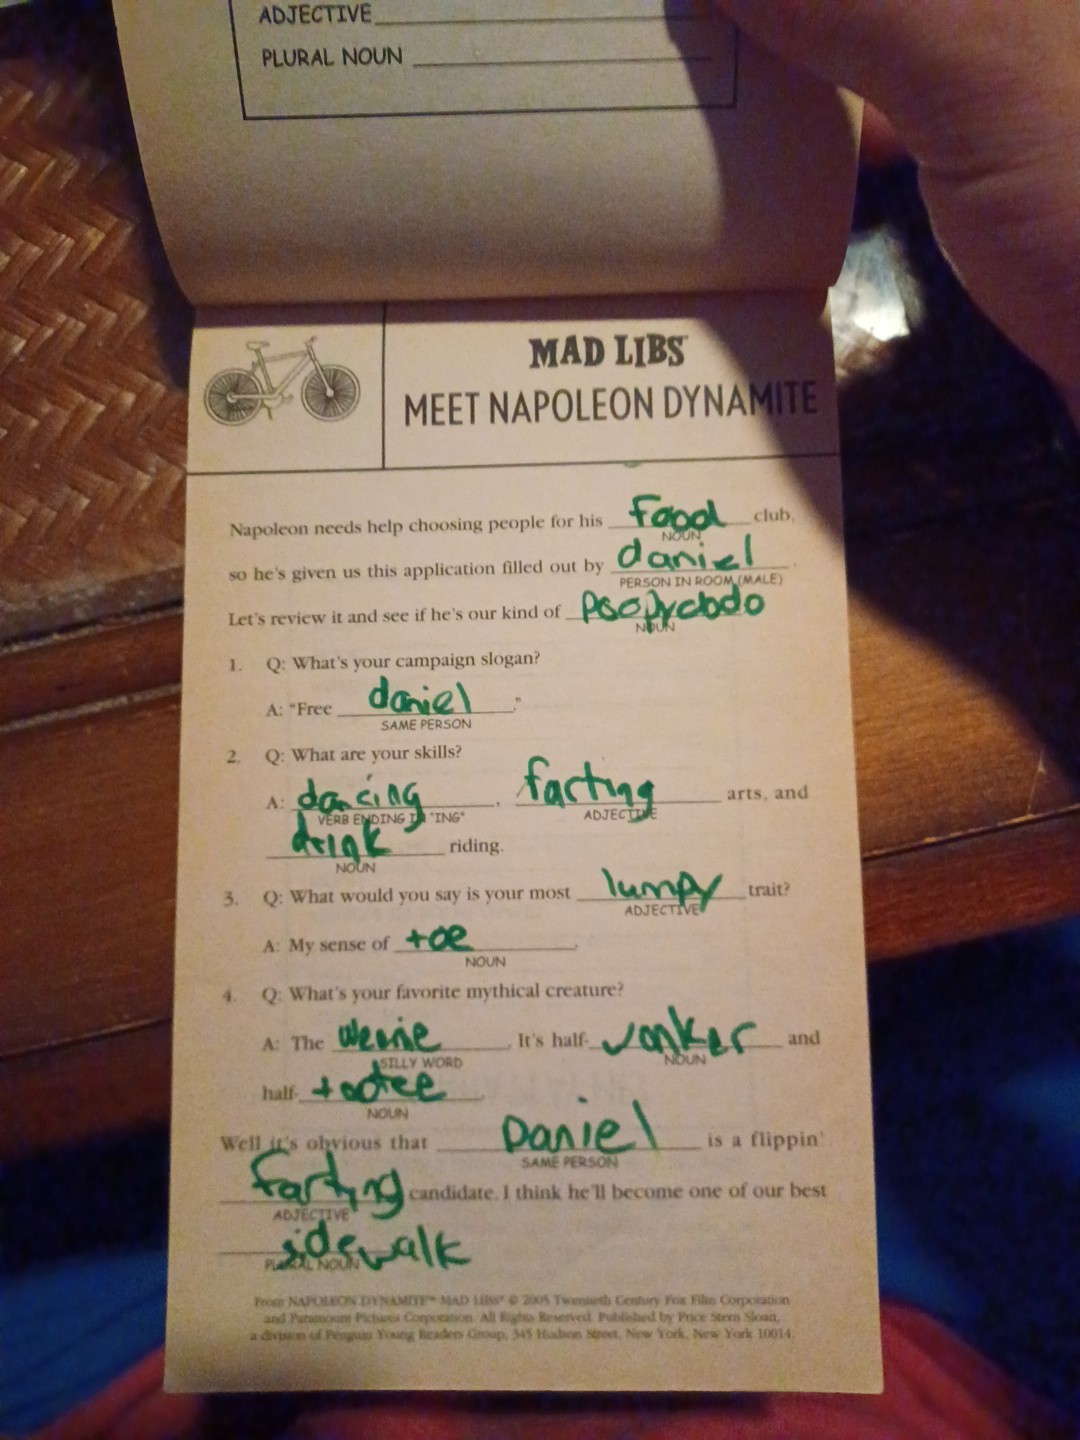 ADJECTIVE
PLURAL NOUN
MAD LIBS
MEET NAPOLEON DYNAMITE
Napoleon needs help choosing people for his food club,
NOUN
so he's given us this application filled out by daniel.
PERSON IN ROOM (MALE)
Let's review it and see if he's our kind of
NOUN
1. Q: What's your campaign slogan?
A: "Free daniel."
SAME PERSON
2. Q: What are your skills?
A: dancing, farting arts, and
VERB ENDING IN "ING" ADJECTIVE
drink riding.
NOUN
3. Q: What would you say is your most lumpy trait?
ADJECTIVE
A: My sense of toe.
NOUN
4. Q: What's your favorite mythical creature?
A: The weenie. It's half- and
SILLY WORD NOUN
half-
NOUN
Well it's obvious that Daniel is a flippin'
SAME PERSON
farting candidate. I think he'll become one of our best
ADJECTIVE
sidewalk
PLURAL NOUN
From NAPOLEON DYNAMITE™ MAD LIBS® © 2005 Twentieth Century Fox Film Corporation
and Paramount Pictures Corporation. All Rights Reserved. Published by Price Stern Sloan,
a division of Penguin Young Readers Group, 345 Hudson Street, New York, New York 10014.